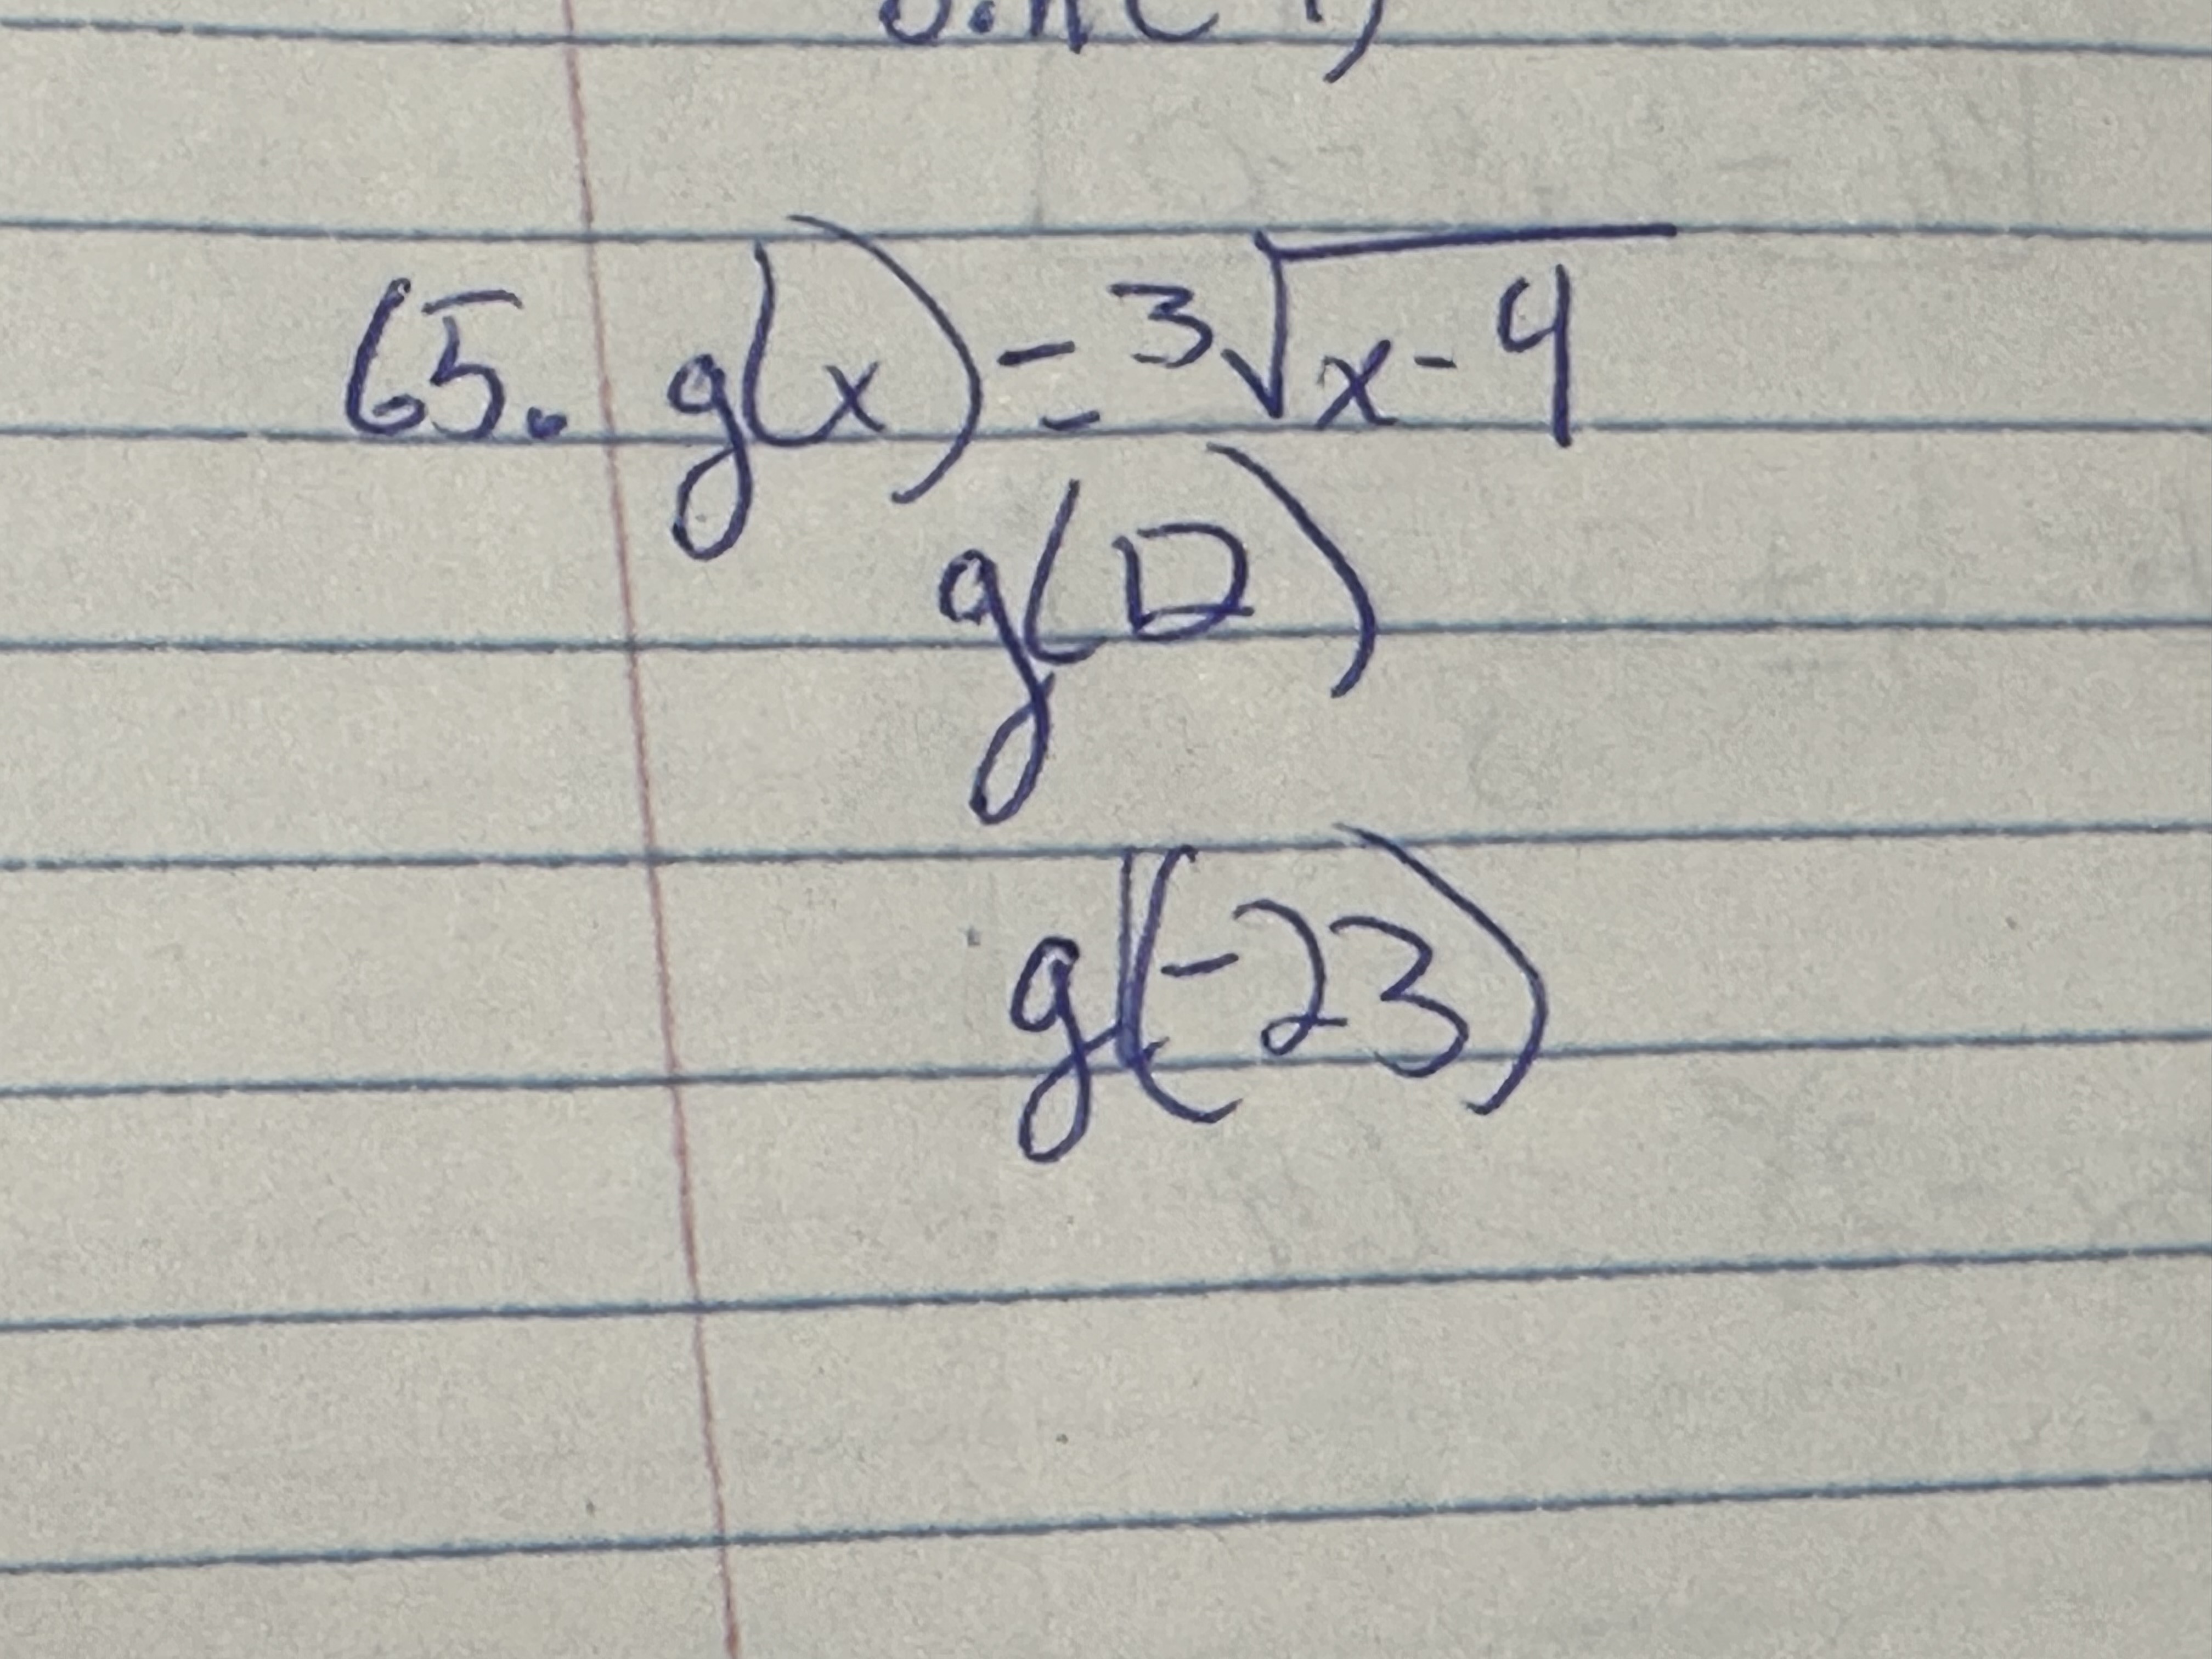 65. g(x) = ³√x-4
g(12)
g(-23)